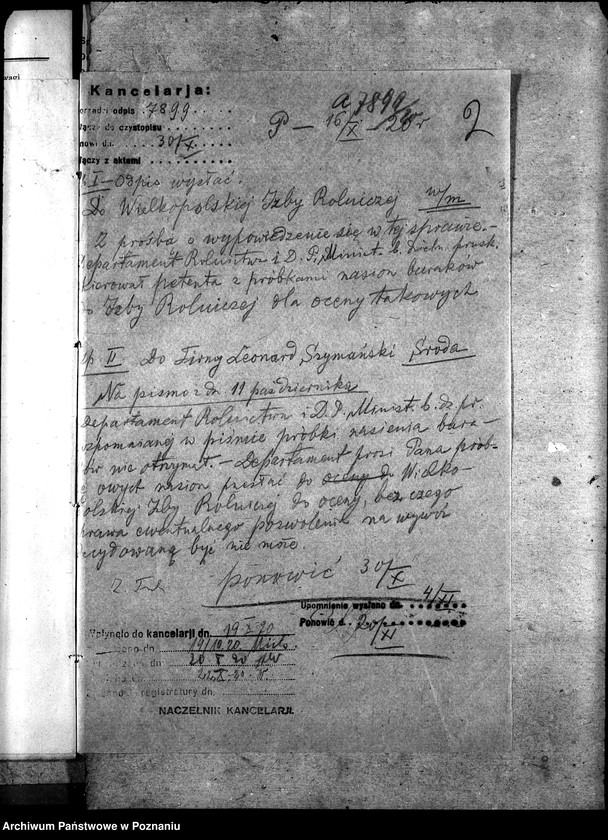 Kancelarja:
odpis 7899
do czystopisu
30/X
łączy z aktami
A 7899/20
P — 16/X 20 r
2
I – Odpis wysłać.
Do Wielkopolskiej Izby Rolniczej w/m
Z prośbą o wypowiedzenie się w tej sprawie. –
Departament Rolnictwa i D. P. Minist. b. Dzieln. prusk.
skierował petenta z próbkami nasion buraków
Izby Rolniczej dla oceny takowych
II Do Firmy Leonard Szymański Środa
Na pismo z dn. 11 października
Departament Rolnictwa i D. P. Minist. b. dz. pr.
wspomnianej w piśmie próbki nasienia bura-
ków nie otrzymał. – Departament prosi Pana prób-
owych nasion przesłać do oceny do Wielko-
polskiej Izby Rolniczej do oceny, bez czego
sprawa ewentualnego pozwolenia na wywóz
decydowaną być nie może.
ponowić 30/X
Upomnienie wysłano dn. 4/XI
Ponowić d. 20/XI
Wpłynęło do kancelarji dn. 19 X 20
dn. 19/10.20
dn. 20 X 20
22.X.20
registratury dn.
NACZELNIK KANCELARJI.
Archiwum Państwowe w Poznaniu